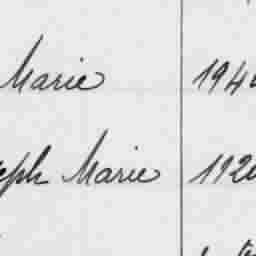 Marie 194
eph Marie 192